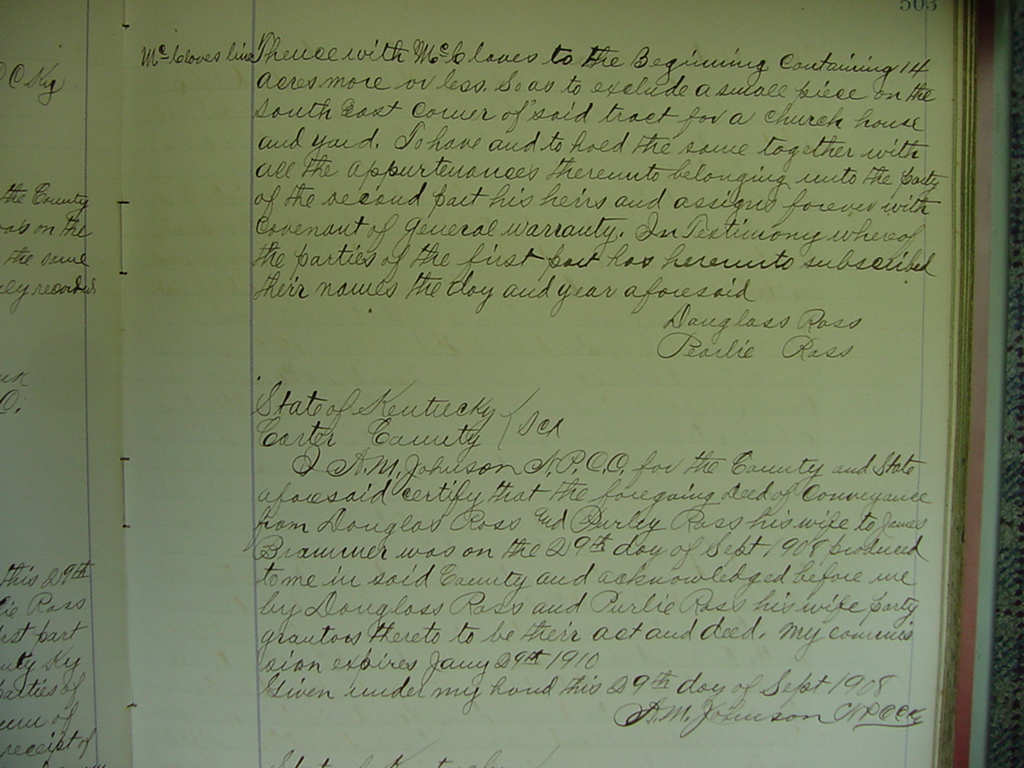 503
McCloves line Thence with McCloves to the Beginning Containing 14
acres more or less. So as to exclude a small piece on the
south East corner of said tract for a church house
and yard. To have and to hold the same together with
all the appurtenances thereunto belonging unto the party
of the second part his heirs and assigns forever with
Covenant of General warranty. In Testimony whereof
the parties of the first part has hereunto subscribed
their names the day and year aforesaid
Douglass Ross
Pearlie Ross
State of Kentucky
Carter County / Sct
I A.M. Johnson N.P.C.C. for the County and State
aforesaid certify that the foregoing Deed of Conveyance
from Douglas Ross and Purley Ross his wife to James
Brammer was on the 29th day of Sept 1908 produced
to me in said County and acknowledged before me
by Douglass Ross and Purlie Ross his wife party
grantors thereto to be their act and deed. My commis
sion expires Jany 29th 1910
Given under my hand this 29th day of Sept 1908
A.M. Johnson N.P.C.C.Ky
C Ky
the County
on the
the same
this 29th
lie Ross
rst part
nty Ky
parties of
of
receipt of